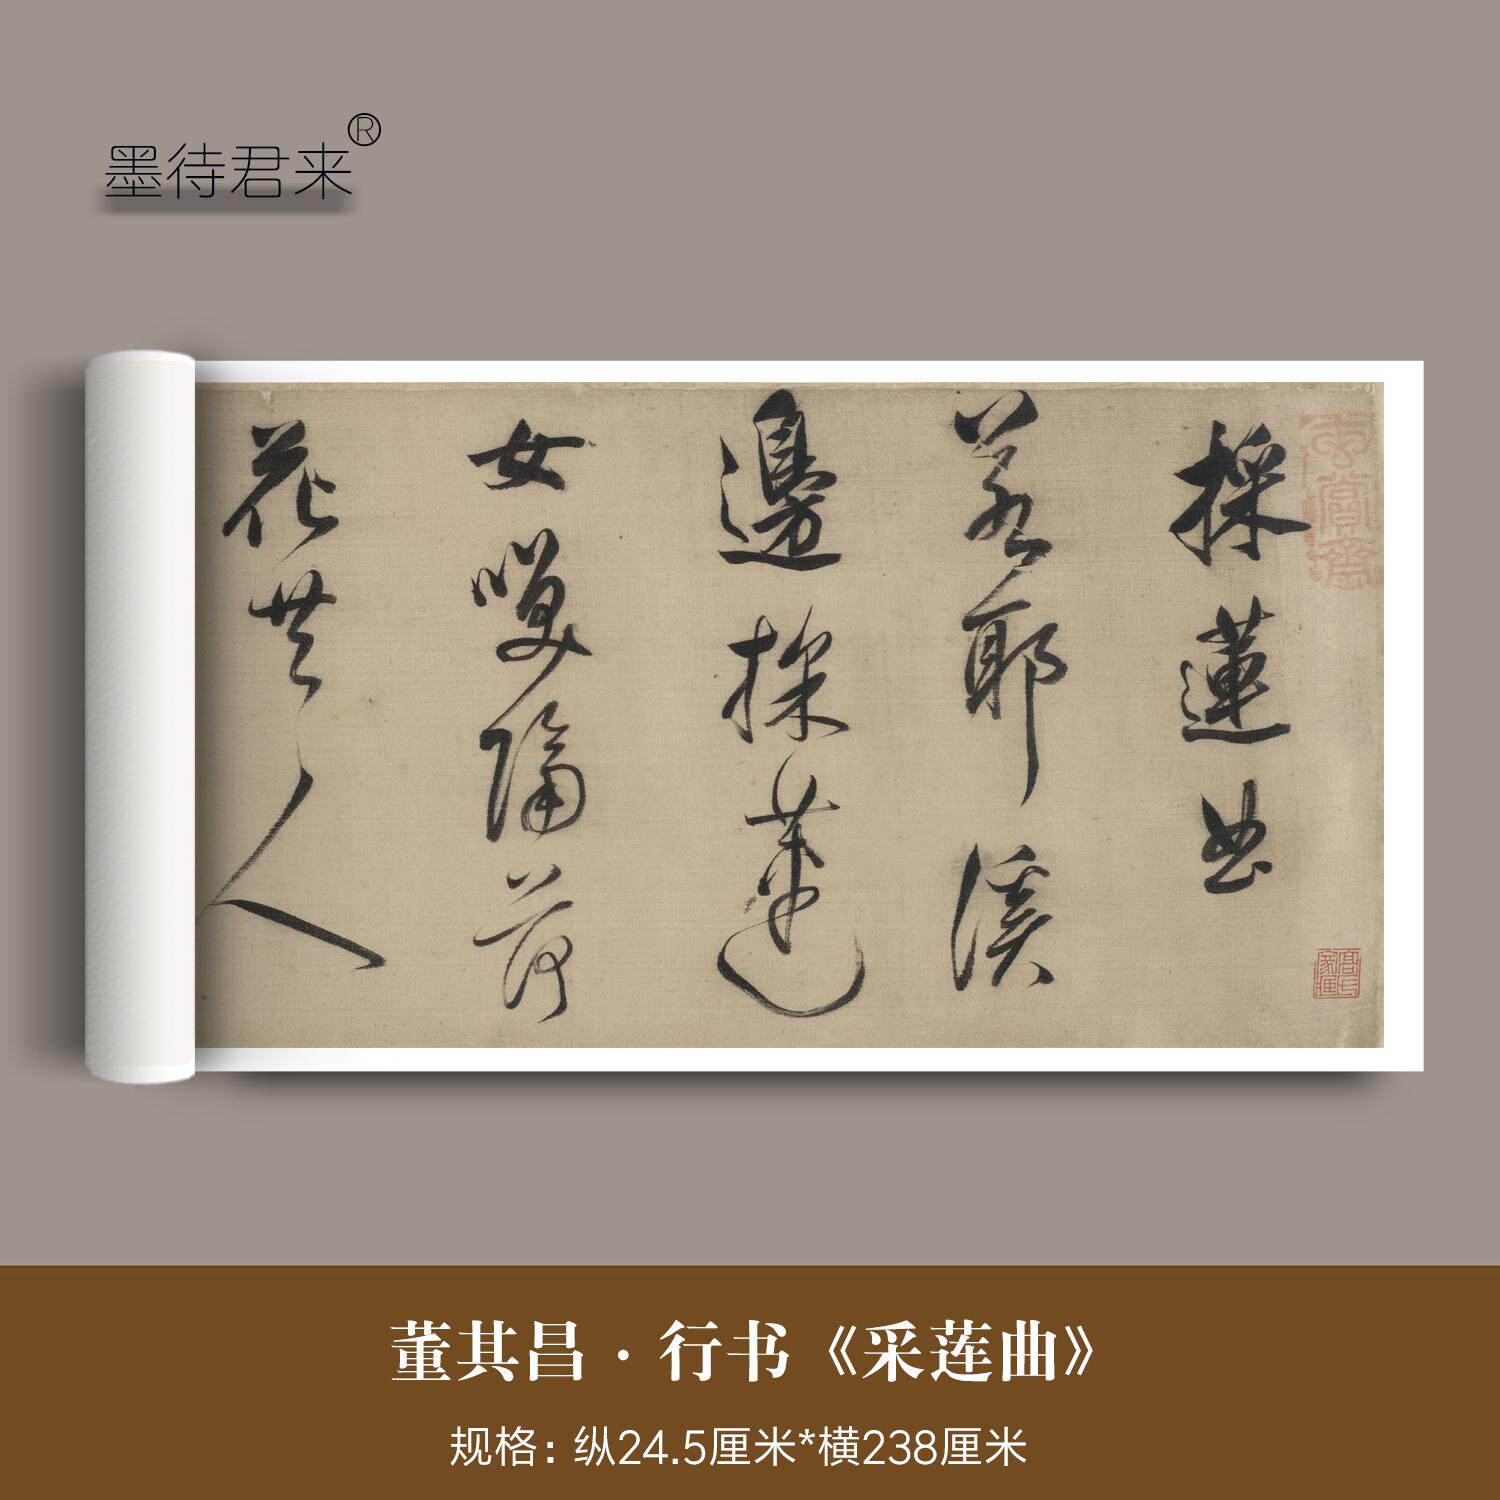 墨待君来®
玄賞齋
採蓮曲
若耶溪
邊採蓮
女笑隔荷
花共人
董其昌·行书《采莲曲》
规格：纵24.5厘米*横238厘米